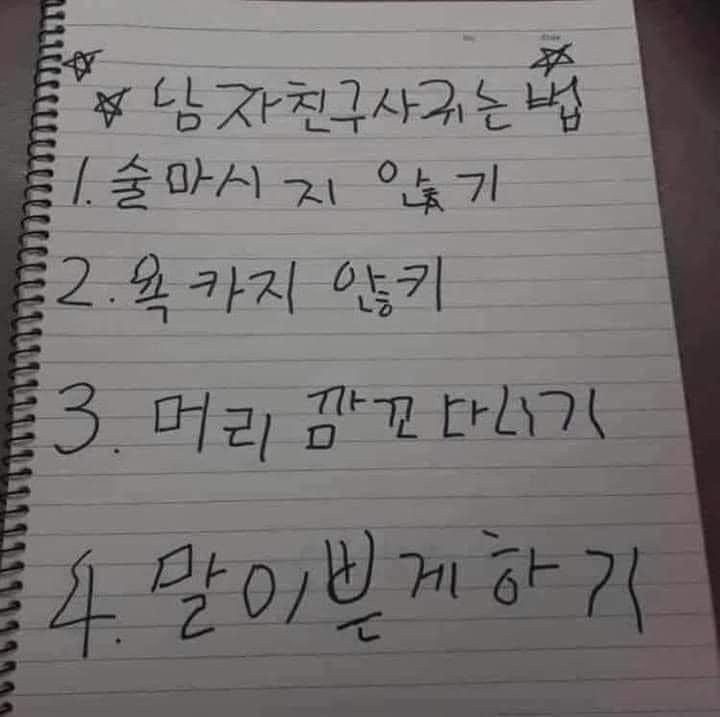 ☆ ☆
☆ 남자친구사귀는 법
1. 술마시지 않기
2. 욕카지 않키
3. 머리 깜꼬 다니기
4. 말이쁜게하기